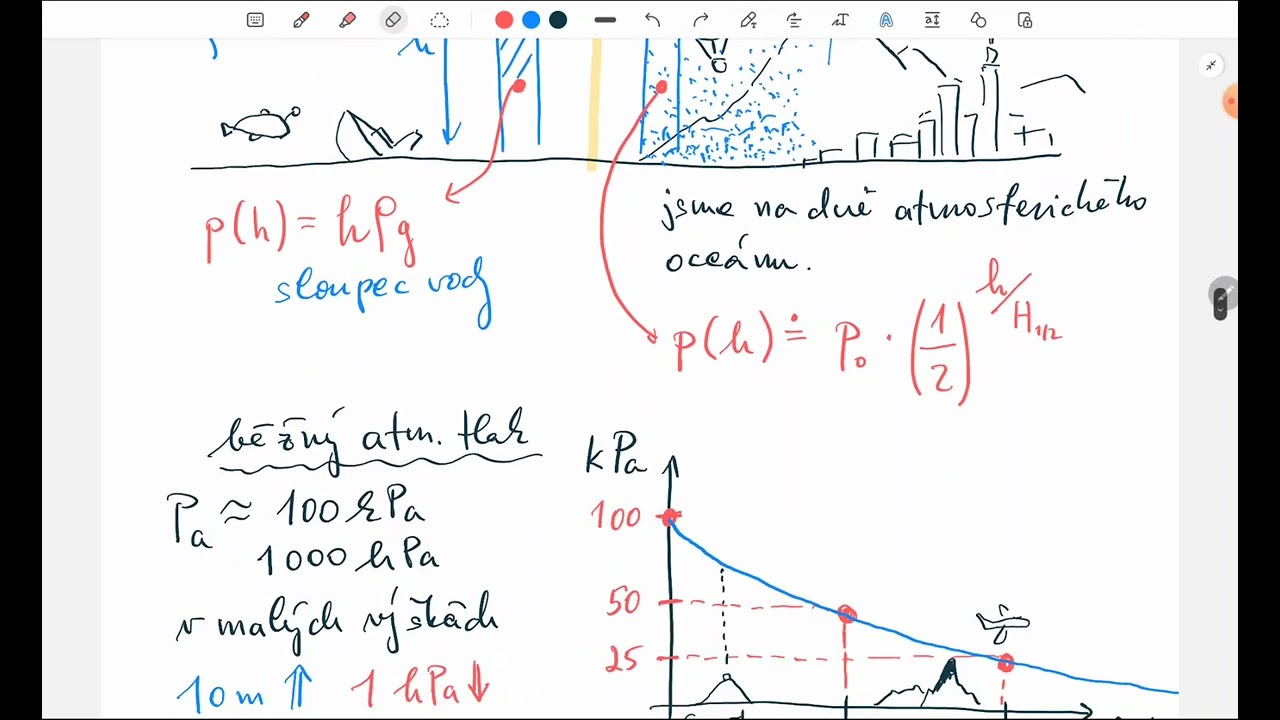 h
p(h) = hρg
sloupec vody
jsme na dně atmosferického
oceánu.
p(h) ≐ p₀ · (1/2)^(h/H₁/₂)
běžný atm. tlak
Pa ≈ 100 kPa
1000 hPa
v malých výškách
10m ⇑ 1 hPa ↓
kPa
100
50
25